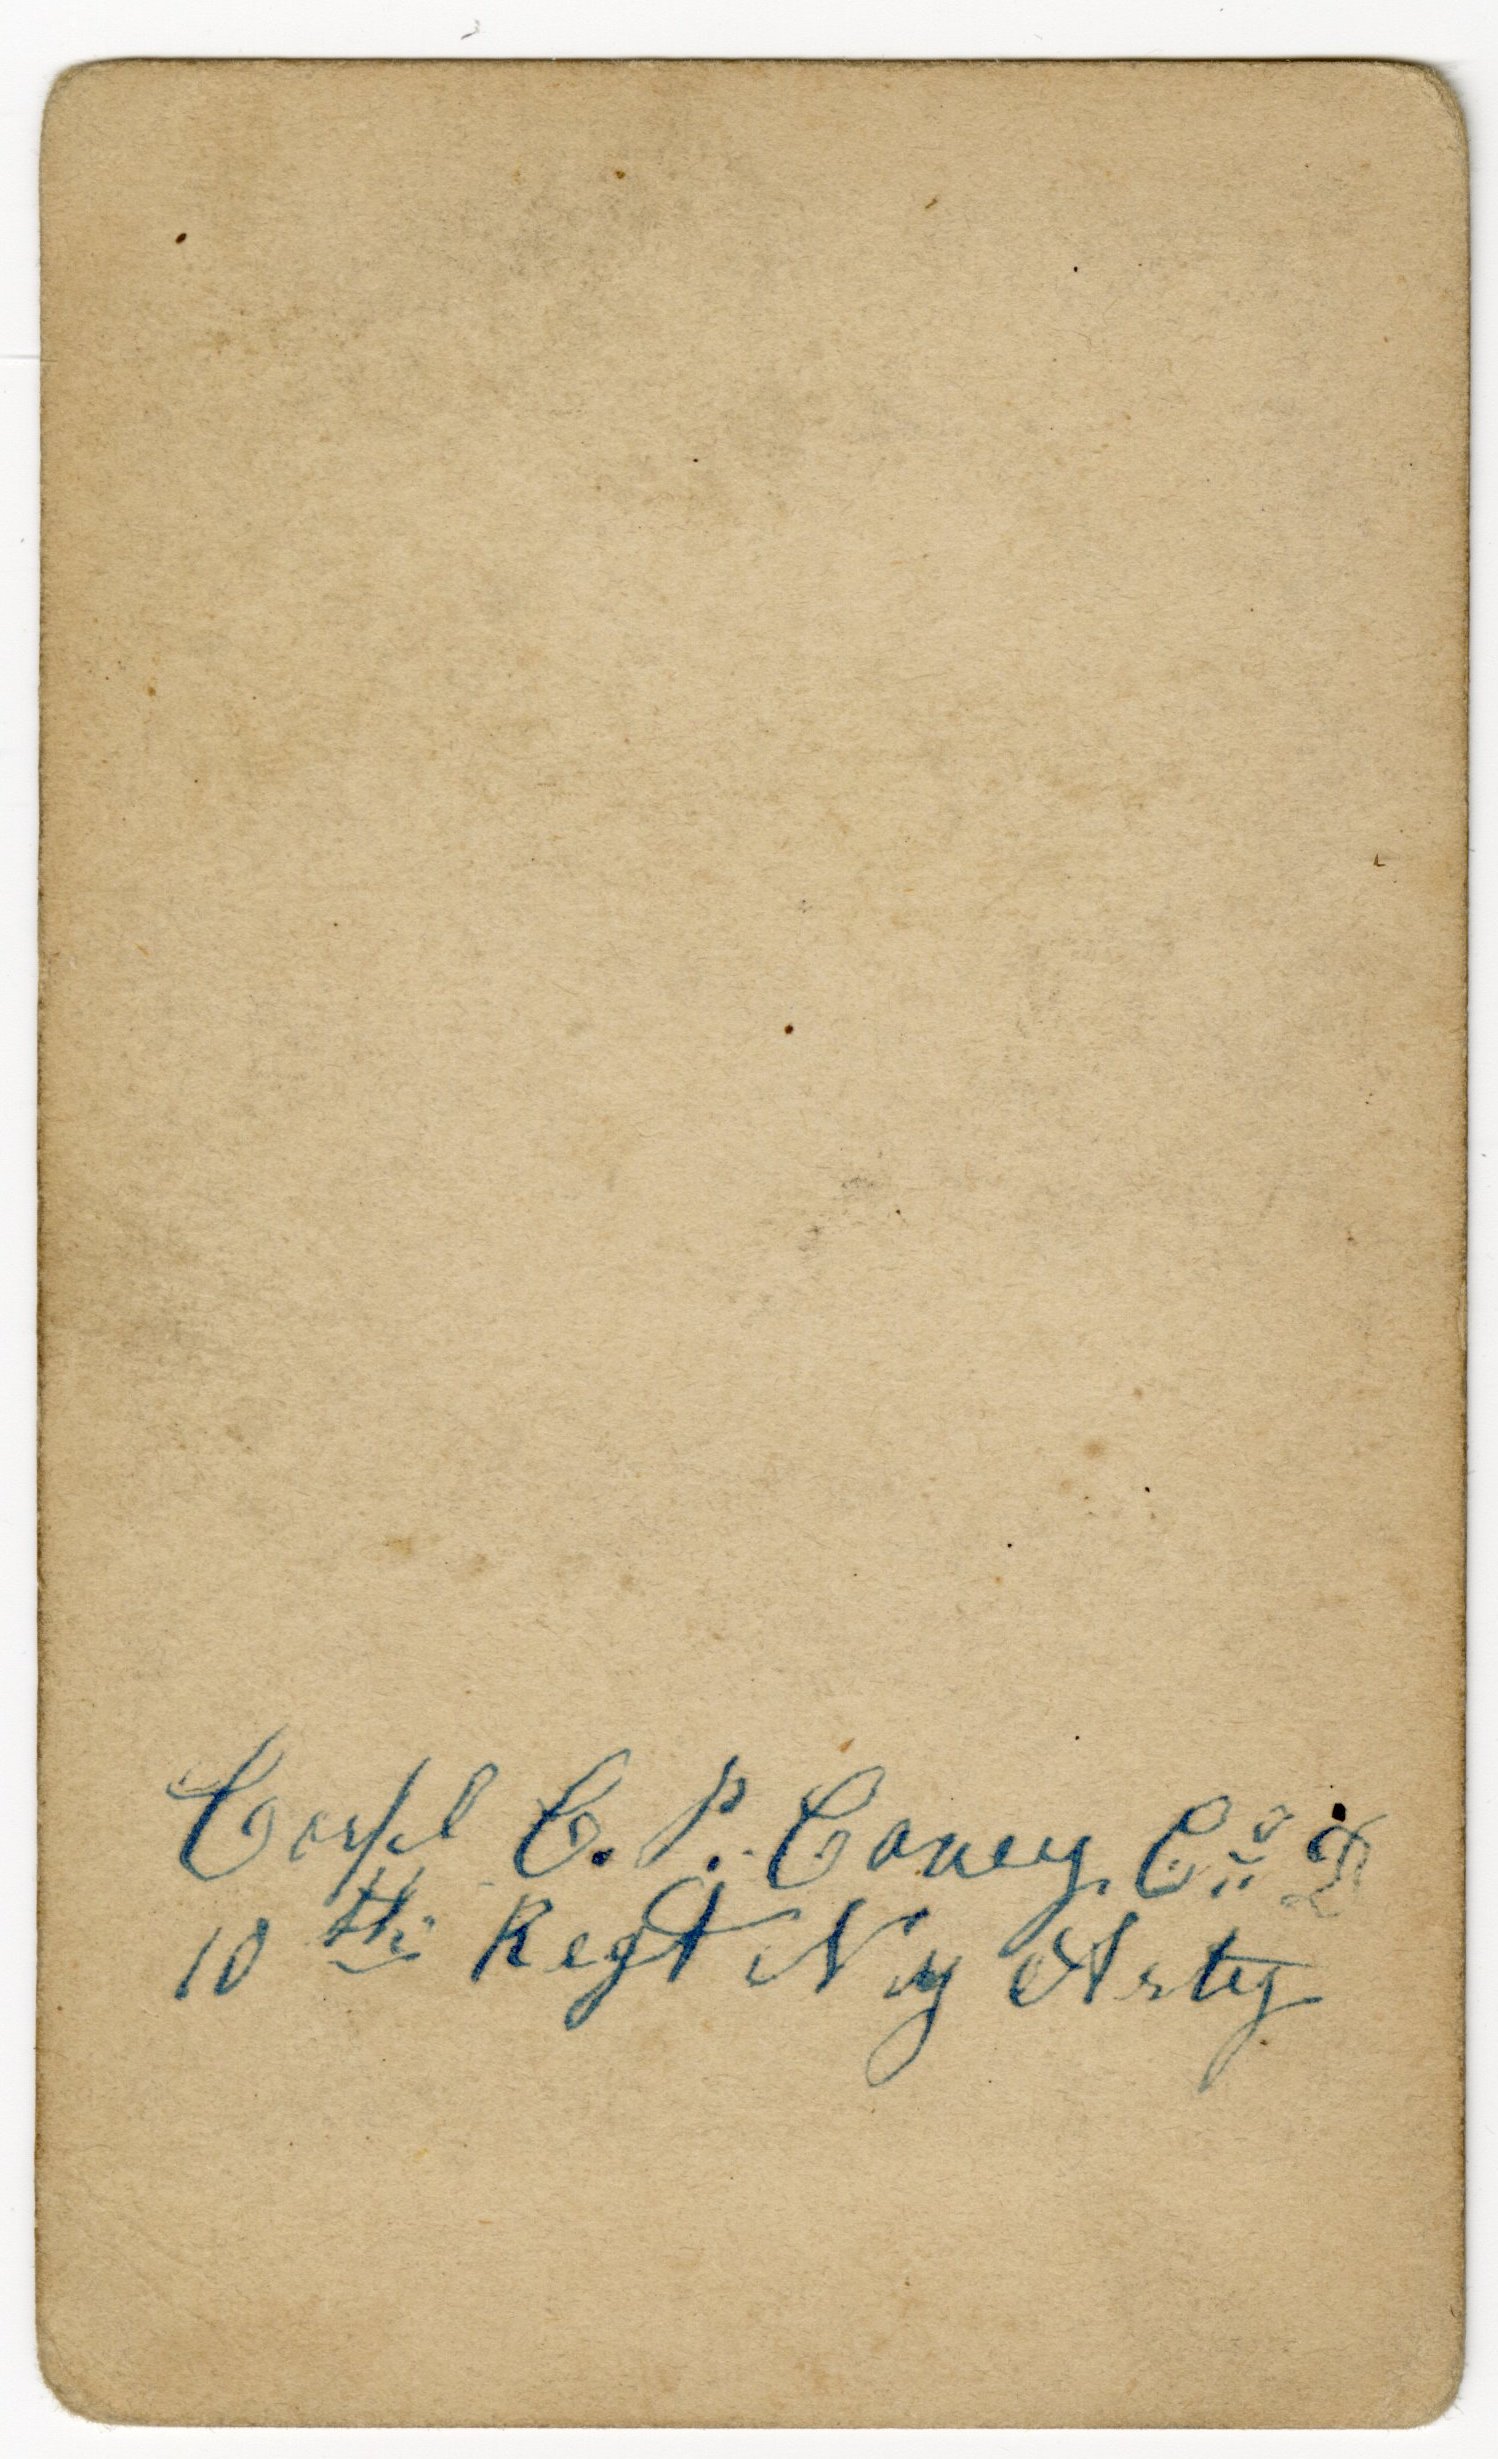 Corpl C. P. Coney Co D
10th Regt N y Arty